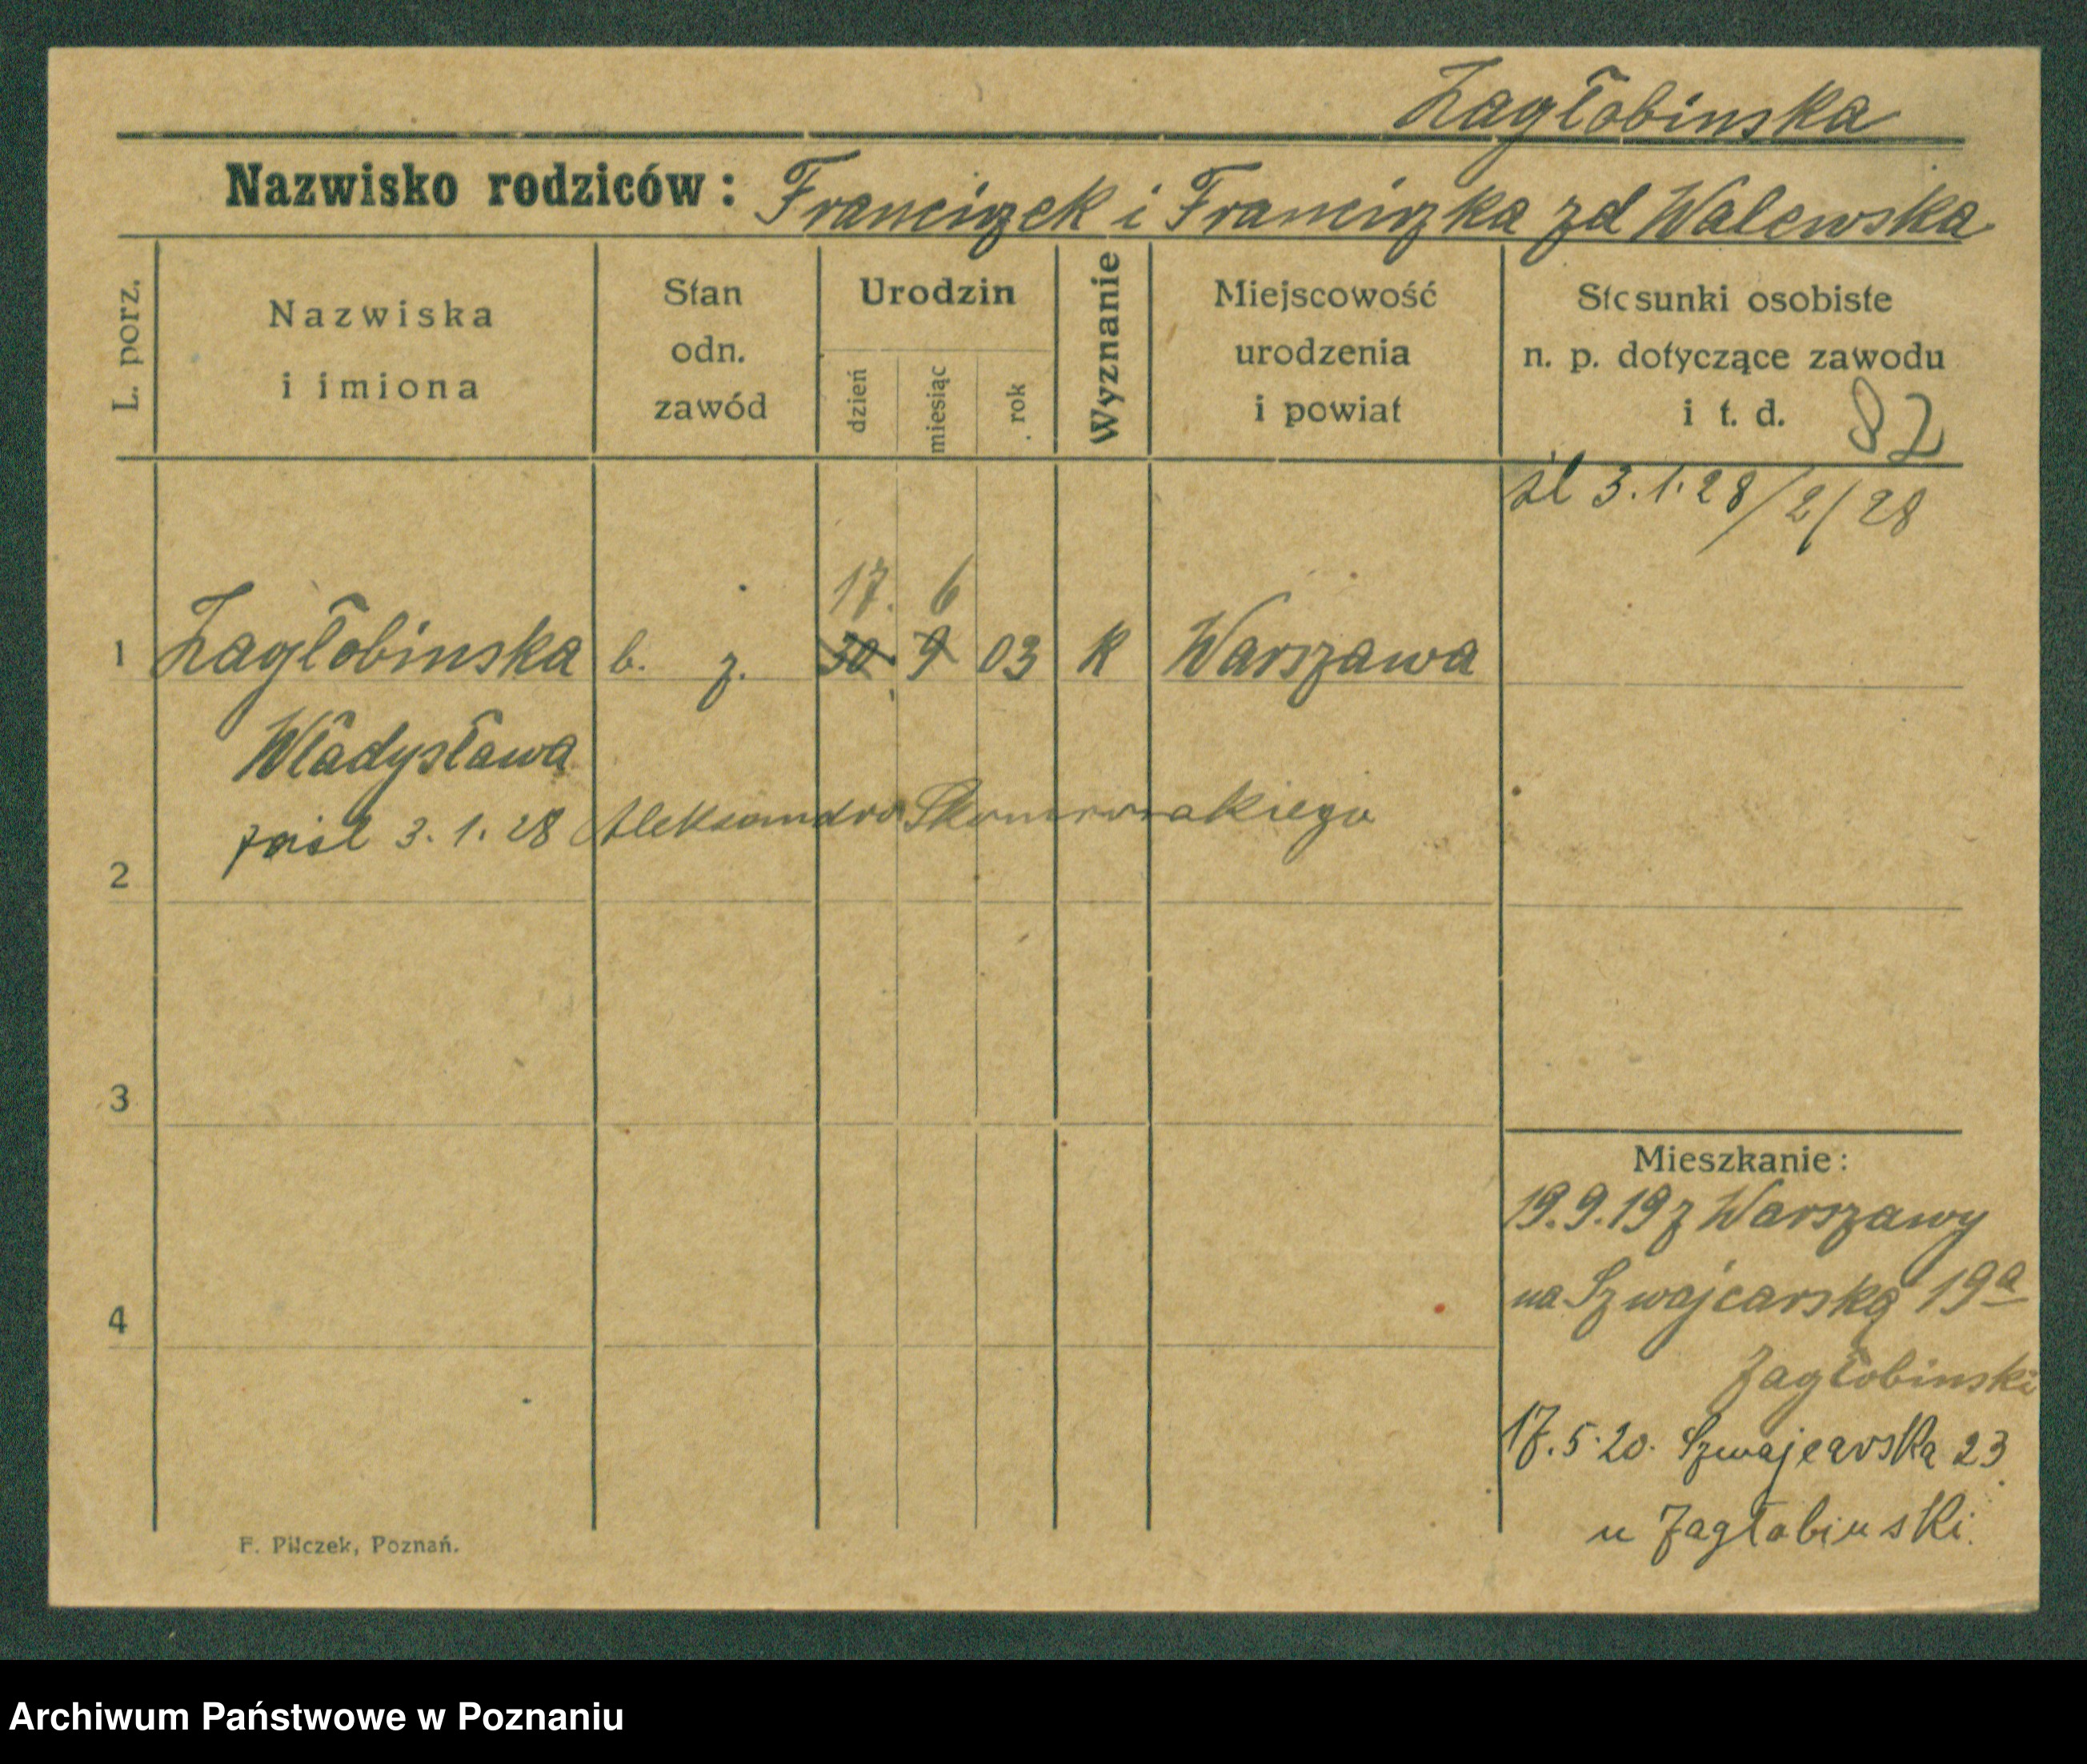 Zagłobinska
Nazwisko rodziców: Franciszek i Franciszka zd Walewska
L. porz.
Nazwiska
i imiona
Stan
odn.
zawód
Urodzin
dzień
miesiąc
rok
Wyznanie
Miejscowość
urodzenia
i powiat
Stosunki osobiste
n. p. dotyczące zawodu
i t. d.
82
śl 3.1.28/2/28
17. 6
1 Zagłobinska b. z. 30. 9 03 K Warszawa
Władysława
zaśl 3. 1. 28 Aleksandra
2
3
Mieszkanie:
19.9.19 z Warszawy
na Szwajcarską 19a
4
Zagłobinski
17.5.20. Szwajcarska 23
u Zagłobinski.
F. Pilczek, Poznań.
Archiwum Państwowe w Poznaniu